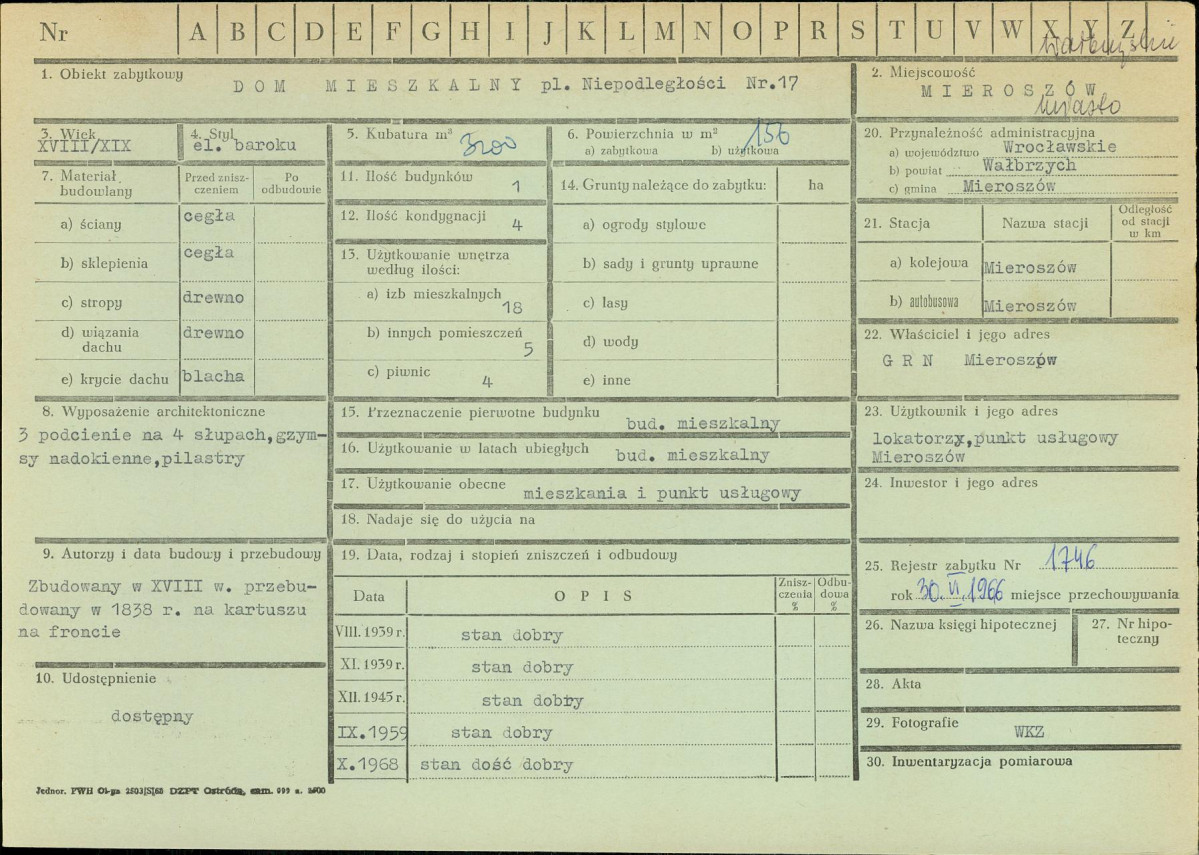 Nr A B C D E F G H I J K L M N O P R S T U V W X Y Z
Wałbrzyskie
1. Obiekt zabytkowy
DOM MIESZKALNY pl. Niepodległości Nr.17
2. Miejscowość
MIEROSZÓW
miasto
3. Wiek
XVIII/XIX
4. Styl
el. baroku
5. Kubatura m³ 3200
6. Powierzchnia w m² 156
a) zabytkowa b) użytkowa
7. Materiał budowlany
Przed zniszczeniem
Po odbudowie
a) ściany cegła
b) sklepienia cegła
c) stropy drewno
d) wiązania dachu drewno
e) krycie dachu blacha
8. Wyposażenie architektoniczne
3 podcienie na 4 słupach,gzym-
sy nadokienne,pilastry
9. Autorzy i data budowy i przebudowy
Zbudowany w XVIII w. przebu-
dowany w 1838 r. na kartuszu
na froncie
10. Udostępnienie
dostępny
11. Ilość budynków 1
12. Ilość kondygnacji 4
13. Użytkowanie wnętrza
według ilości:
a) izb mieszkalnych 18
b) innych pomieszczeń 5
c) piwnic 4
14. Grunty należące do zabytku: ha
a) ogrody stylowe
b) sady i grunty uprawne
c) lasy
d) wody
e) inne
15. Przeznaczenie pierwotne budynku bud. mieszkalny
16. Użytkowanie w latach ubiegłych bud. mieszkalny
17. Użytkowanie obecne mieszkania i punkt usługowy
18. Nadaje się do użycia na
19. Data, rodzaj i stopień zniszczeń i odbudowy
Data OPIS Zniszczenia % Odbudowa %
VIII. 1939 r. stan dobry
XI. 1939 r. stan dobry
XII. 1945 r. stan dobry
IX.1959 stan dobry
X.1968 stan dość dobry
20. Przynależność administracyjna
a) województwo Wrocławskie
b) powiat Wałbrzych
c) gmina Mieroszów
21. Stacja Nazwa stacji Odległość od stacji w km
a) kolejowa Mieroszów
b) autobusowa Mieroszów
22. Właściciel i jego adres
GRN Mieroszów
23. Użytkownik i jego adres
lokatorzy,punkt usługowy
Mieroszów
24. Inwestor i jego adres
25. Rejestr zabytku Nr 1746
rok 30.VI.1966 miejsce przechowywania
26. Nazwa księgi hipotecznej
27. Nr hipoteczny
28. Akta
29. Fotografie
WKZ
30. Inwentaryzacja pomiarowa
Jednor. PWH DZPT Ostróda, zam.